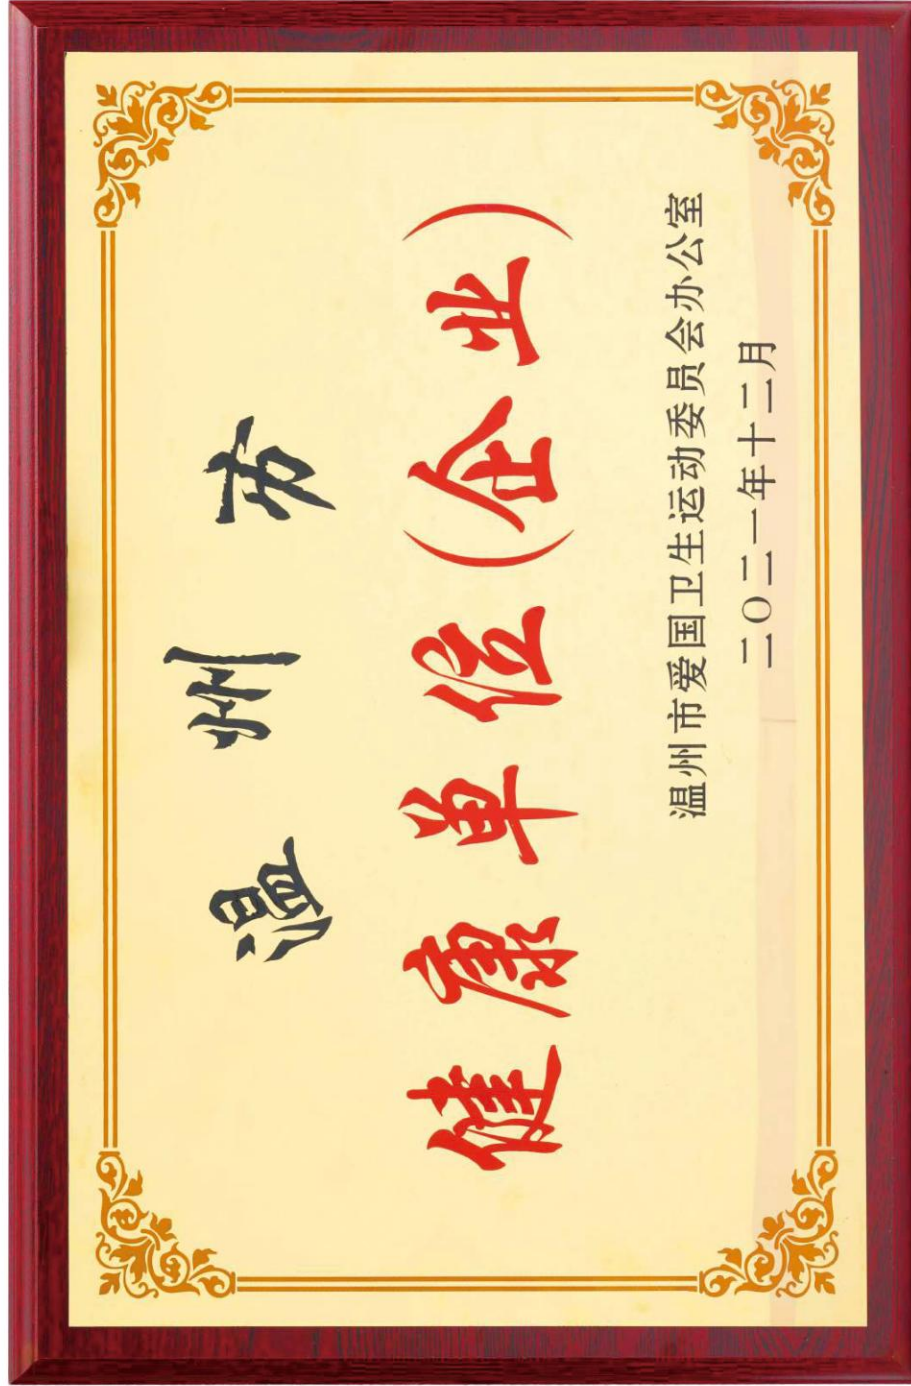 温州市
健康单位(企业)
温州市爱国卫生运动委员会办公室
二〇二一年十二月